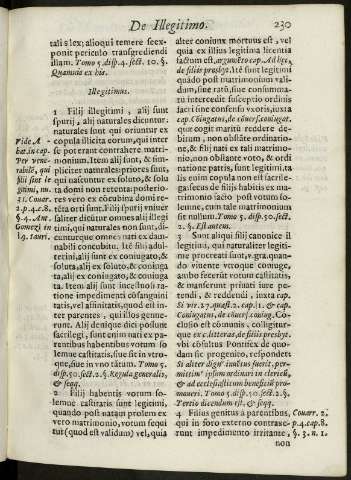 De Illegitimo. 230
tali s lex; alioqui temere seex-
ponit periculo transgrediendi
illam. Tomo 5. disp. 4. sect. 10. §.
Quamuis ex his.
Illegitimus.
1 Filij illegitimi, alij sunt
spurij, alij naturales dicuntur.
naturales sunt qui oriuntur ex
copula illicita eorum, qui inter
se poterant contrahere matri-
monium. Item alij sunt, & sim-
pliciter naturales priores sunt,
qui nascuntur ex soluto, & solu
ta domi non retenta: posterio-
res verò ex cõcubina domi re-
tẽta orti sunt. filij spurij vniuer
saliter dicũtur omnes alij illegi
timi, qui naturales non sunt, di-
cunturque omnes nati ex dam-
nabili concubitu. Itẽ filij adul-
rerini, alij sunt ex coniugato, &
soluta, alij ex soluto, & coniuga
ta, alij ex coniugato, & coniuga
ta. Item alij sunt incestuosi ra-
tione impedimenti cõsanguini
tatis, vel affinitatis, quod est in-
ter parentes, qui illos genue-
runt. Alij denique dici possunt
sacrilegi, sunt enim nati ex pa-
rentibus habentibus votum so
lemne castitatis, siue sit in vtro-
que, siue in vno tãtum. Tomo 5.
disp. 50. sect. 2. §. Regula generalis,
& seqq.
2 Filij habentis votum so-
lemne castitatis sunt legitimi,
quando post natam prolem ex
vero matrimonio, votum sequi
tur (quod est validum) vel, quia
Vide. A-
Ter vene-
rabilẽ, qui
filij sint le
gitimi, nu.
31. Couar.
2. p. 4. c. 8.
§. 4. Ant.
Gomezj in
l. 9. tauri.
alter coniunx mortuus est, vel
quia ex illius legitima licentia
factum est, argumẽto cap. Ad hęc,
de filijs presbyt. Itẽ sunt legitimi
quãdo post matrimonium vali-
dum, siue rato, siue consumma-
tu intercedit susceptio ordinis
sacri, seu consensu vxoris, iuxta
cap. Cõiugatus, de cõuers. coniugat.
que cogit maritũ reddere de-
bitum, non obstãte ordinatio-
ne, & filij nati ex tali matrimo-
nio, non obstante voto, & ordi
natione patris, sunt legitimi. ta
lis enim copula non est sacrile-
ga. secus de filijs habitis ex ma-
trimonio facto post votum so-
lemne, cum tale matrimonium
sit nullum. Tomo 5. disp. 50. sect.
2. §. Est autem.
3 Sunt aliqui filij canonicè il
legitimi, qui naturaliter legiti-
mè procreati sunt, v. gra. quan-
do vitente vtroque coniuge,
ambo fecerũt votum castitatis,
& manserunt priuati iure pe-
tendi, & reddendi, iuxta cap.
Si vir. 27. quæst. 2. cap. 1. & cap.
Coniugatus, de cõuers. coniug. Co-
clusio est communis, colligitur-
que ex c. litteras, de filijs presbyt.
vbi cõsultus Pontifex de quo-
dam sic progenito, respondet:
Si aliter dignꝰ inuẽtus fuerit, per-
mittimꝰ ipsum ordinari in clericũ,
& ad ecclesiasticum beneficiũ pro-
moueri. Tomo 5. disp. 50. sect. 2. §.
Tertio dicendum est, & seqq.
4 Filius genitus a parentibus,
qui in foro externo contraxe-
runt impedimento irritante,
non
Couarr. 2.
p. 4. cap. 8.
§. 3. n. 1.